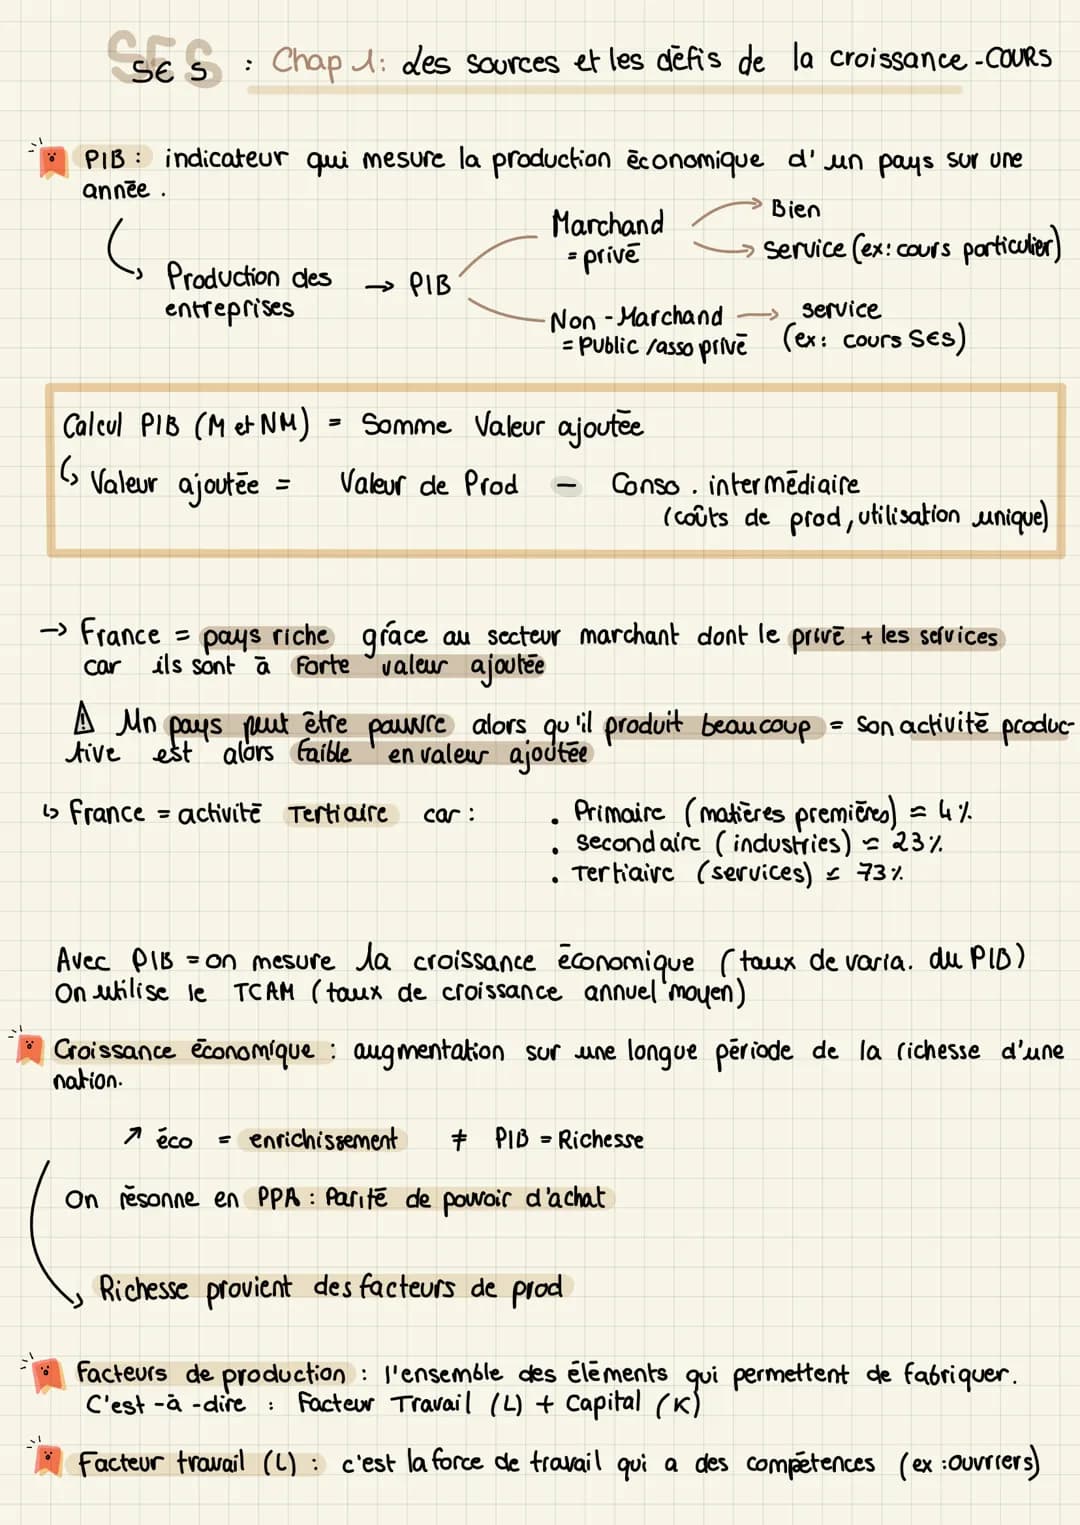 SES
SES : Chap 1: des sources et les défis de la croissance - COURS
PIB : indicateur qui mesure la production économique d'un pays sur une
année.
Production des entreprises → PIB
Marchand = privé
Bien
service (ex: cours particulier)
Non-Marchand = Public /asso privé → service (ex: cours SES)
Calcul PIB (M et NM) = Somme Valeur ajoutée
↳ Valeur ajoutée = Valeur de Prod - Conso. intermédiaire
(coûts de prod, utilisation unique)
→ France = pays riche grâce au secteur marchant dont le privé + les services
car ils sont à Forte valeur ajoutée
⚠ Un pays peut être pauvre alors qu'il produit beaucoup = son activité produc-
tive est alors faible en valeur ajoutée
↳ France = activité Tertiaire car :
. Primaire (matières premières) ≃ 4%
. secondaire (industries) ≃ 23%
. Tertiaire (services) ≃ 73%
Avec PIB = on mesure la croissance économique (taux de varia. du PIB)
On utilise le TCAM (taux de croissance annuel moyen)
Croissance économique : augmentation sur une longue période de la richesse d'une
nation.
↗ éco = enrichissement ≠ PIB = Richesse
On résonne en PPA : Parité de pouvoir d'achat
Richesse provient des facteurs de prod
Facteurs de production : l'ensemble des éléments qui permettent de fabriquer.
C'est-à-dire : Facteur Travail (L) + Capital (K)
Facteur travail (L) : c'est la force de travail qui a des compétences (ex : ouvriers)